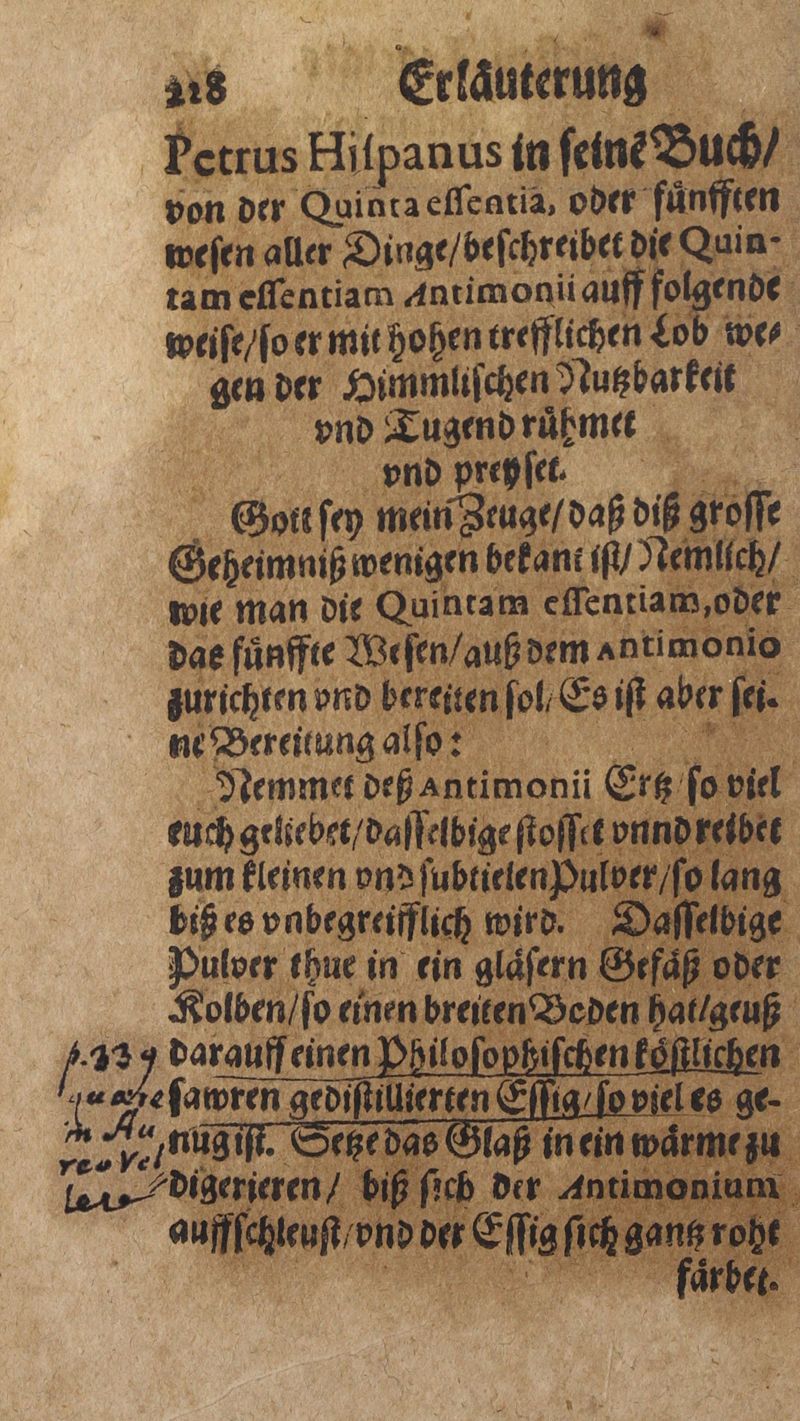 218 Erläuterung
Petrus Hispanus in seinē Buch/
von der Quinta essentia, oder fünfften
wesen aller Dinge/beschreibet die Quin-
tam essentiam Antimonii auff folgende
weise/so er mit hohen trefflichen Lob we-
gen der Himmlischen Nutzbarkeit
vnd Tugend rühmet
vnd preyset.
Gott sey mein Zeuge/daß diß grosse
Geheimniß wenigen bekant ist/Nemlich/
wie man die Quintam essentiam, oder
das fünffte Wesen/auß dem Antimonio
zurichten vnd bereiten sol/Es ist aber sei-
ne Bereitung also:
Nemmet deß Antimonii Ertz so viel
euch geliebet/dasselbige stosset vnnd reibet
zum kleinen vnd subtielen Pulver/so lang
biß es vnbegreifflich wird. Dasselbige
Pulver thue in ein gläsern Gefäß oder
Kolben/so einen breiten Boden hat/geuß
p.239 darauff einen Philosophischen köstlichen
quære sawren gedistillierten Essig/so viel es ge-
in Au nüg ist. Setze das Glaß in ein wärme zu
reo Vel
lere digerieren/ biß sich der Antimonium
auffschleust/vnd der Essig sich gantz roht
färbet.